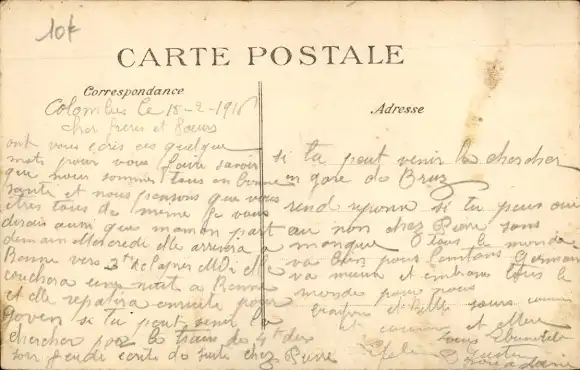 10f
CARTE POSTALE
Correspondance
Adresse
Colombes le 15-2-1916
cher frères et sœurs
ont vous écris ces quelque
mots pour vous faire savoir
que nous sommes tous en bonne
santé et nous pensons que vous
êtes tous de même Je vous
dirais aussi que maman part
demain Mercredi elle arrivera a
vers de la près Midi elle
couchera une nuit a
et elle repartira ensuite pour
Goven si tu peut venir la
chercher par le train de 4h des
son Jeudi écrite de suite chez Pierre
si tu peut venir la chercher
en gare de Bruz
rend reponse si tu peus oui
au non chez Pierre sans
manque tous le monde
va bien pour Germain
va mieux et embrasse tous le
monde pour nous
frères et belle sœurs cousin
et cousines et